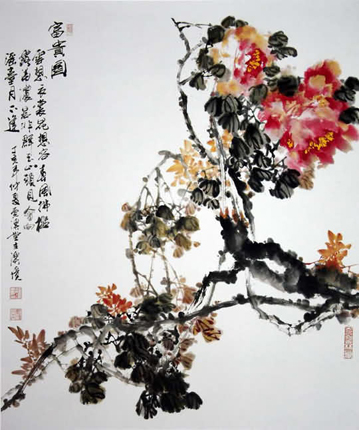 富貴圖
雲想衣裳花想容春風拂檻
露華濃若非群玉山頭見會向
瑤臺月下逢
丁亥年仲夏